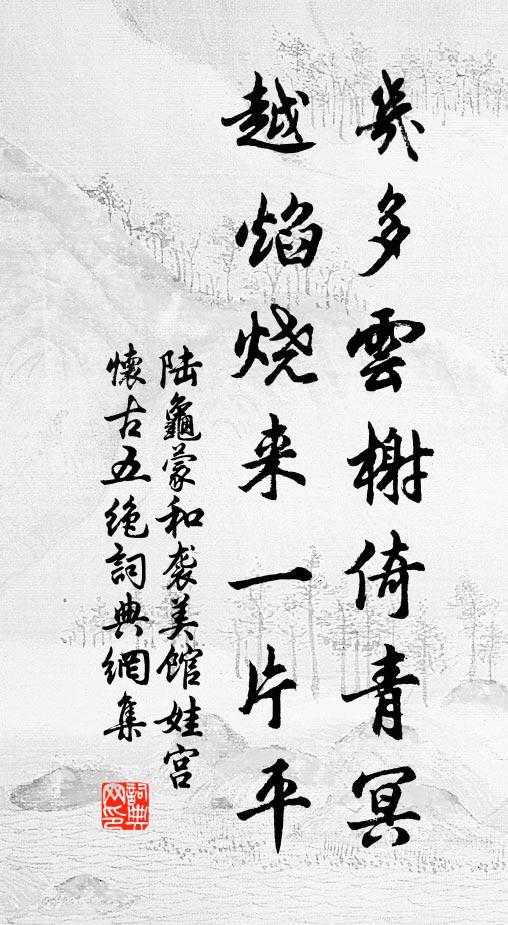 幾多雲榭倚青冥
越焰烧来一片平
陆龜蒙和袭美館娃宫
懷古五绝詞典網集
詞典网印